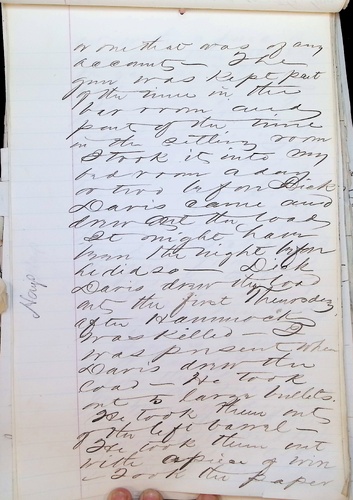 or one that was of any
account — The
gun was kept part
of the time in the
bar room and
part of the time
in the sitting room
I took it into my
bed room a day
or two before Dick
Davis came and
drew out the load
It might have
been the night before
he did so — Dick
Davis drew the load
out the first Thursday
after Hammock
was killed — I
was present when
Davis drew the
load — He took
out 5 large bullets.
He took them out
of the left barrel —
He took them out
with a piece of wire
I took the paper
Nays